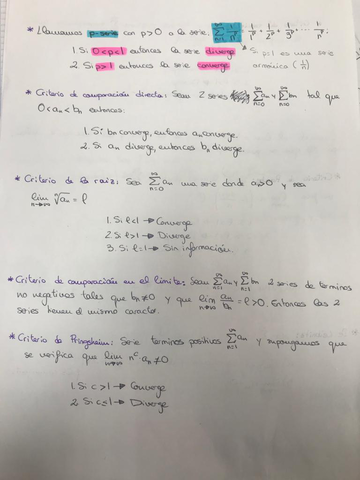 * Llamamos p-serie con p>0 a la serie: ∑_{n=1}^{∞} 1/n^p = 1/1^p + 1/2^p + 1/3^p + ... + 1/n^p
1. Si 0<p<1 entonces la serie diverge
* Si p=1 es una serie
2. Si p>1 entonces la serie converge
armónica (1/n)
* Criterio de comparación directa: Sean 2 series ∑_{n=0}^{∞} an y ∑_{n=0}^{∞} bn tal que
0<an<bn entonces:
1. Si bn converge, entonces an converge
2. Si an diverge, entonces bn diverge
* Criterio de la raiz: Sea ∑_{n=0}^{∞} an una serie donde an>0 y sea
lim_{n→∞} ⁿ√an = l
1. Si l<1 → Converge
2. Si l>1 → Diverge
3. Si l=1 → Sin información.
* Criterio de comparación en el límite: Sean ∑_{n=1}^{∞} an y ∑_{n=1}^{∞} bn 2 series de términos
no negativos tales que bn≠0 y que lim_{n→∞} an/bn = l>0. Entonces las 2
series tienen el mismo caracter.
* Criterio de Pringsheim: Serie términos positivos ∑_{n=1}^{∞} an y supongamos que
se verifica que lim_{n→∞} n^c an≠0
1. Si c>1 → Converge
2. Si c≤1 → Diverge